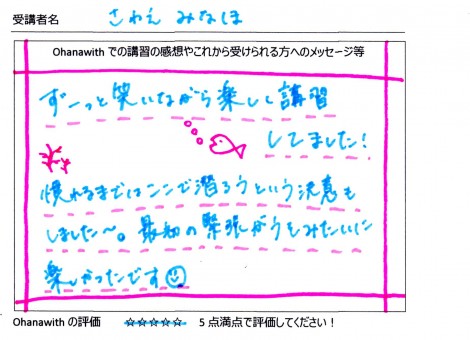 受講者名 さわえ みなほ
Ohanawith での講習の感想やこれから受けられる方へのメッセージ等
ずーっと笑いながら楽しく講習
してました!
慣れるまではここで潜ろうという決意も
しました〜。最初の緊張がうそみたいに
楽しかったです
Ohanawith の評価 ☆☆☆☆☆ 5 点満点で評価してください!